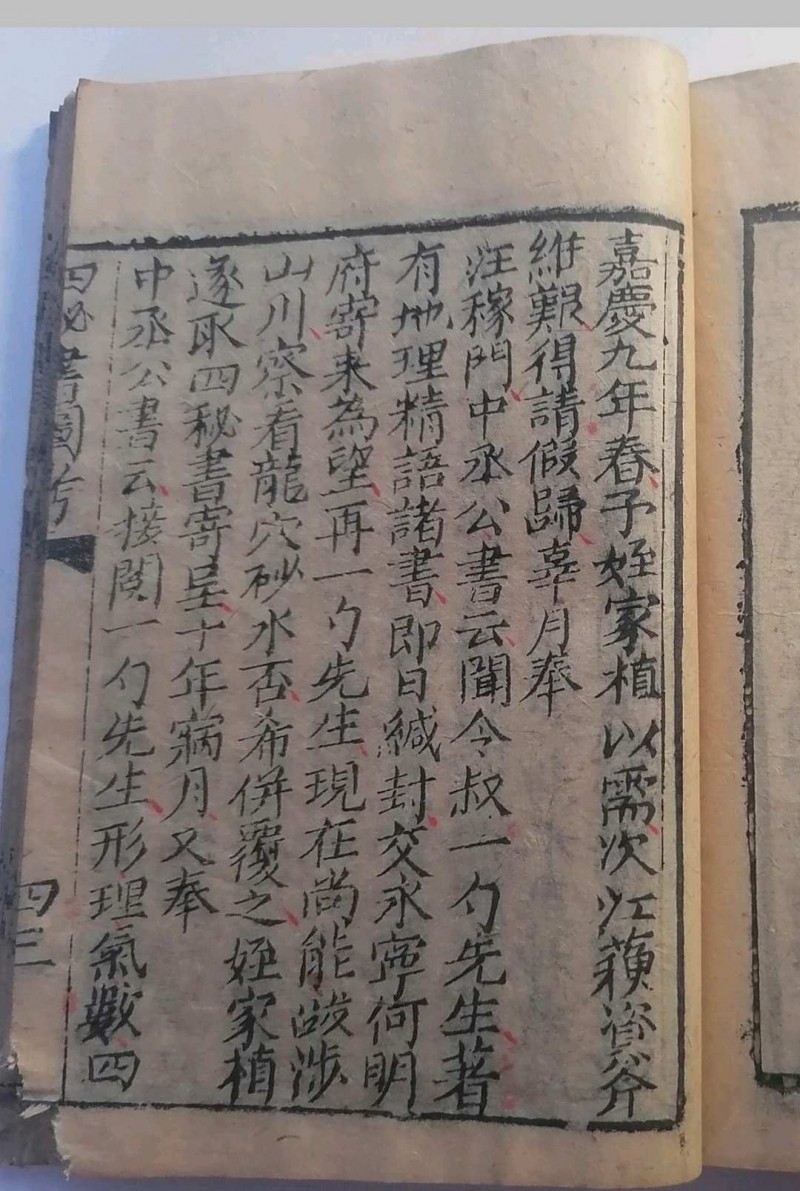 嘉慶九年春予姪家植以需次江蘓資斧
維艱得請假歸辜月奉
汪稼門中丞公書云聞令叔一勺先生著
有地理精語諸書即日緘封交永寧何明
府寄来為望再一勺先生現在尚能跋涉
山川察看龍穴砂水否希併覆之姪家植
遂取四秘書寄呈十年寎月又奉
中丞公書云接閱一勺先生形理氣數四
四秘書圖兮
四三